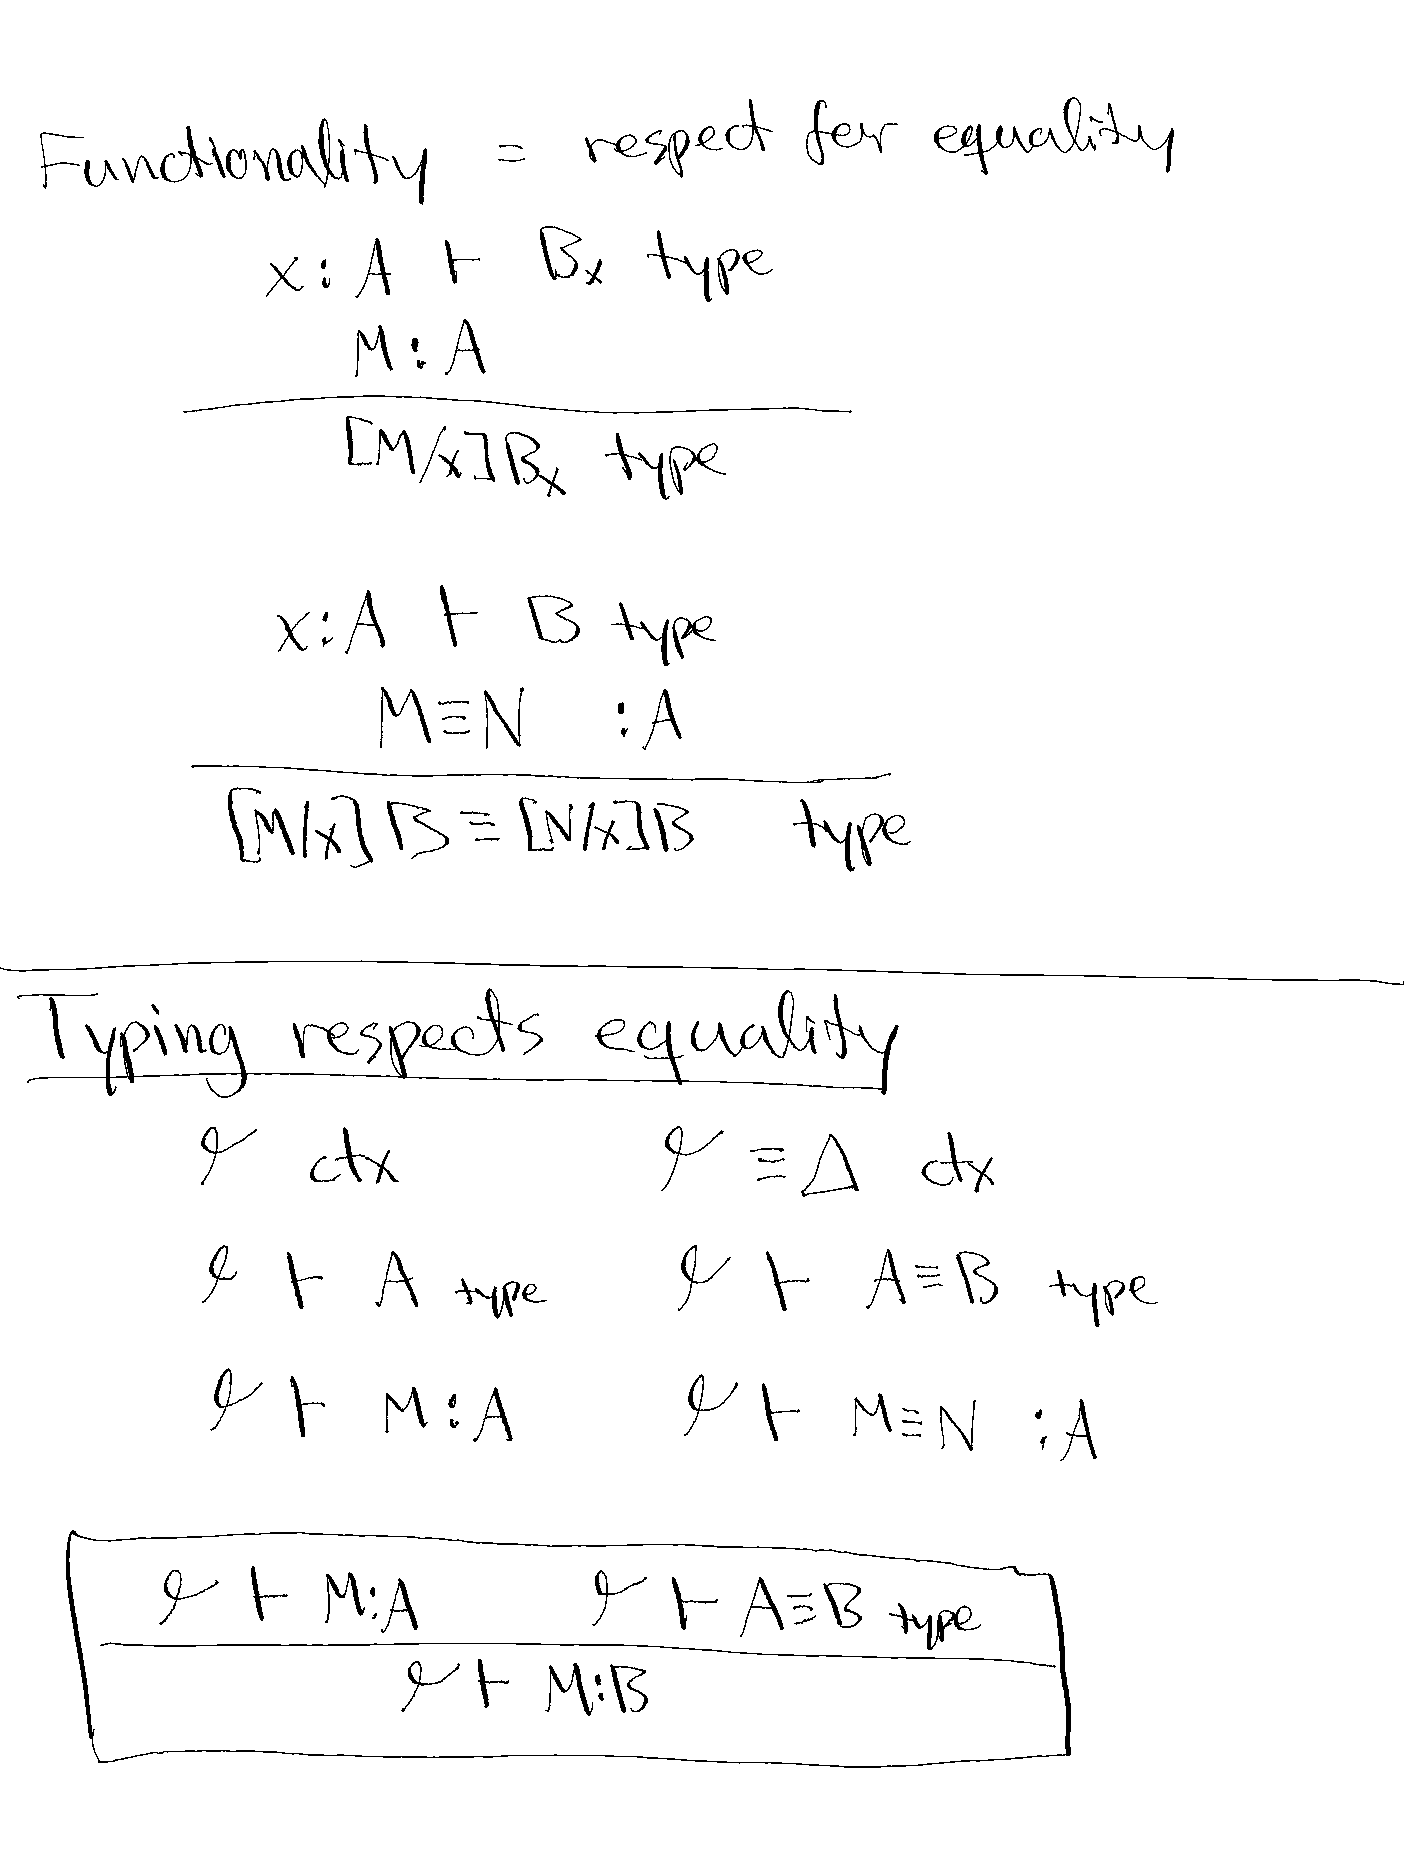 Functionality = respect for equality
x : A ⊢ Bₓ type
M : A
[M/x]Bₓ type
x : A ⊢ B type
M ≡ N : A
[M/x]B ≡ [N/x]B type
Typing respects equality
Γ ctx Γ ≡ Δ ctx
Γ ⊢ A type Γ ⊢ A ≡ B type
Γ ⊢ M : A Γ ⊢ M ≡ N : A
Γ ⊢ M : A Γ ⊢ A ≡ B type
Γ ⊢ M : B